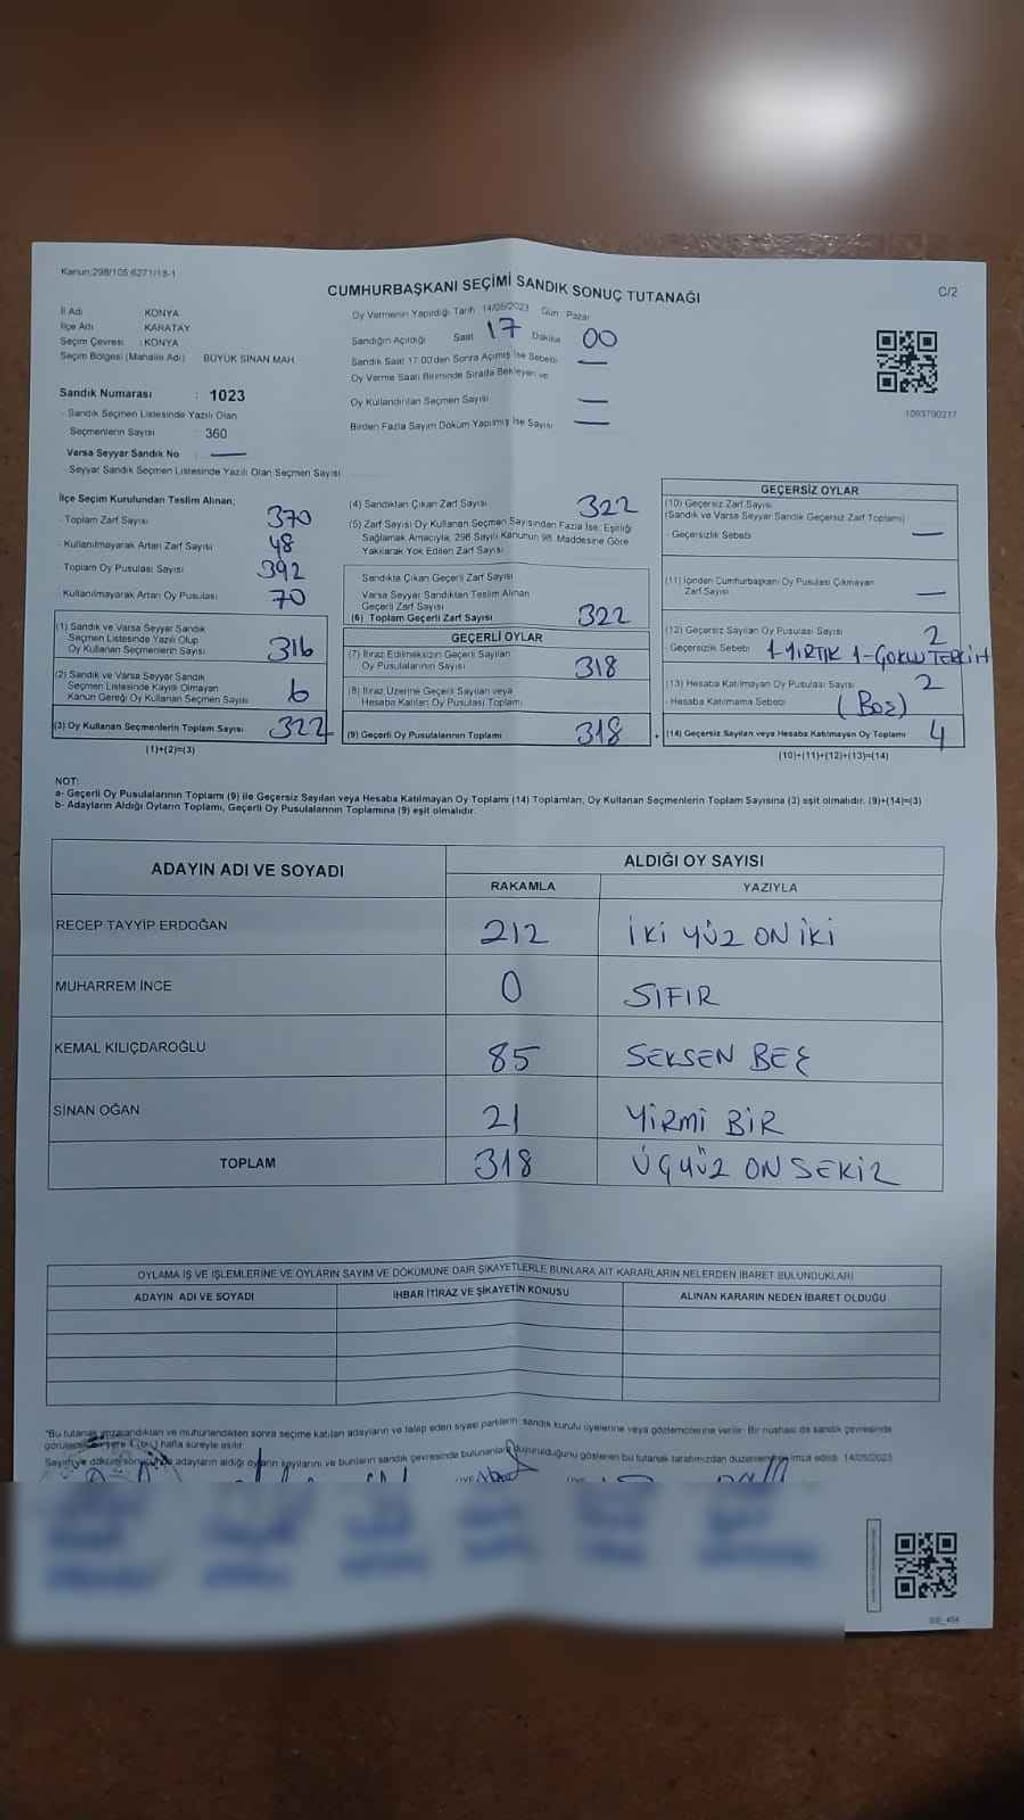 Kanun:298/105;6271/18-1
CUMHURBAŞKANI SEÇİMİ SANDIK SONUÇ TUTANAĞI
C/2
İl Adı KONYA
İlçe Adı KARATAY
Seçim Çevresi : KONYA
Seçim Bölgesi (Mahalle Adı) BÜYÜK SİNAN MAH.
Oy Vermenin Yapıldığı Tarih 14/05/2023 Gün: Pazar
Sandığın Açıldığı Saat 17 Dakika 00
Sandık Saat 17:00'den Sonra Açılmış İse Sebebi —
Oy Verme Saati Bitiminde Sırada Bekleyen ve
Oy Kullandırılan Seçmen Sayısı —
Birden Fazla Sayım Döküm Yapılmış İse Sayısı —
1093790217
Sandık Numarası : 1023
Sandık Seçmen Listesinde Yazılı Olan
Seçmenlerin Sayısı 360
Varsa Seyyar Sandık No —
Seyyar Sandık Seçmen Listesinde Yazılı Olan Seçmen Sayısı
İlçe Seçim Kurulundan Teslim Alınan;
Toplam Zarf Sayısı 370
Kullanılmayarak Artan Zarf Sayısı 48
Toplam Oy Pusulası Sayısı 392
Kullanılmayarak Artan Oy Pusulası 70
(1) Sandık ve Varsa Seyyar Sandık
Seçmen Listesinde Yazılı Olup
Oy Kullanan Seçmenlerin Sayısı 316
(2) Sandık ve Varsa Seyyar Sandık
Seçmen Listesinde Kayıtlı Olmayan
Kanun Gereği Oy Kullanan Seçmen Sayısı 6
(3) Oy Kullanan Seçmenlerin Toplam Sayısı 322
(1)+(2)=(3)
(4) Sandıktan Çıkan Zarf Sayısı 322
(5) Zarf Sayısı Oy Kullanan Seçmen Sayısından Fazla İse; Eşitliği
Sağlamak Amacıyla, 298 Sayılı Kanunun 98. Maddesine Göre
Yakılarak Yok Edilen Zarf Sayısı
Sandıkta Çıkan Geçerli Zarf Sayısı
Varsa Seyyar Sandıktan Teslim Alınan
Geçerli Zarf Sayısı
(6) Toplam Geçerli Zarf Sayısı 322
GEÇERLİ OYLAR
(7) İtiraz Edilmeksizin Geçerli Sayılan
Oy Pusulalarının Sayısı 318
(8) İtiraz Üzerine Geçerli Sayılan veya
Hesaba Katılan Oy Pusulası Toplamı
(9) Geçerli Oy Pusulalarının Toplamı 318
GEÇERSİZ OYLAR
(10) Geçersiz Zarf Sayısı
(Sandık ve Varsa Seyyar Sandık Geçersiz Zarf Toplamı)
Geçersizlik Sebebi —
(11) İçinden Cumhurbaşkanı Oy Pusulası Çıkmayan
Zarf Sayısı —
(12) Geçersiz Sayılan Oy Pusulası Sayısı 2
Geçersizlik Sebebi 1-YIRTIK 1-ÇOKLU TERCİH
(13) Hesaba Katılmayan Oy Pusulası Sayısı 2
Hesaba Katılmama Sebebi (Boş)
(14) Geçersiz Sayılan veya Hesaba Katılmayan Oy Toplamı 4
(10)+(11)+(12)+(13)=(14)
NOT:
a- Geçerli Oy Pusulalarının Toplamı (9) ile Geçersiz Sayılan veya Hesaba Katılmayan Oy Toplamı (14) Toplamları, Oy Kullanan Seçmenlerin Toplam Sayısına (3) eşit olmalıdır. (9)+(14)=(3)
b- Adayların Aldığı Oyların Toplamı, Geçerli Oy Pusulalarının Toplamına (9) eşit olmalıdır.
ADAYIN ADI VE SOYADI ALDIĞI OY SAYISI
RAKAMLA YAZIYLA
RECEP TAYYİP ERDOĞAN 212 İKİ YÜZ ON İKİ
MUHARREM İNCE 0 SIFIR
KEMAL KILIÇDAROĞLU 85 SEKSEN BEŞ
SİNAN OĞAN 21 YİRMİ BİR
TOPLAM 318 ÜÇYÜZ ON SEKİZ
OYLAMA İŞ VE İŞLEMLERİNE VE OYLARIN SAYIM VE DÖKÜMÜNE DAİR ŞİKAYETLERLE BUNLARA AİT KARARLARIN NELERDEN İBARET BULUNDUKLARI
ADAYIN ADI VE SOYADI İHBAR İTİRAZ VE ŞİKAYETİN KONUSU ALINAN KARARIN NEDEN İBARET OLDUĞU
"Bu tutanak imzalandıktan ve mühürlendikten sonra seçime katılan adayların ve talep eden siyasi partilerin sandık kurulu üyelerine veya gözlemcilerine verilir. Bir nüshası da sandık çevresinde
hafta süreyle asılır.
adayların aldığı oyların sayılarını ve bunların sandık çevresinde bulunanlara duyurulduğunu gösteren bu tutanak tarafımızdan düzenlenip imza edildi. 14/05/2023